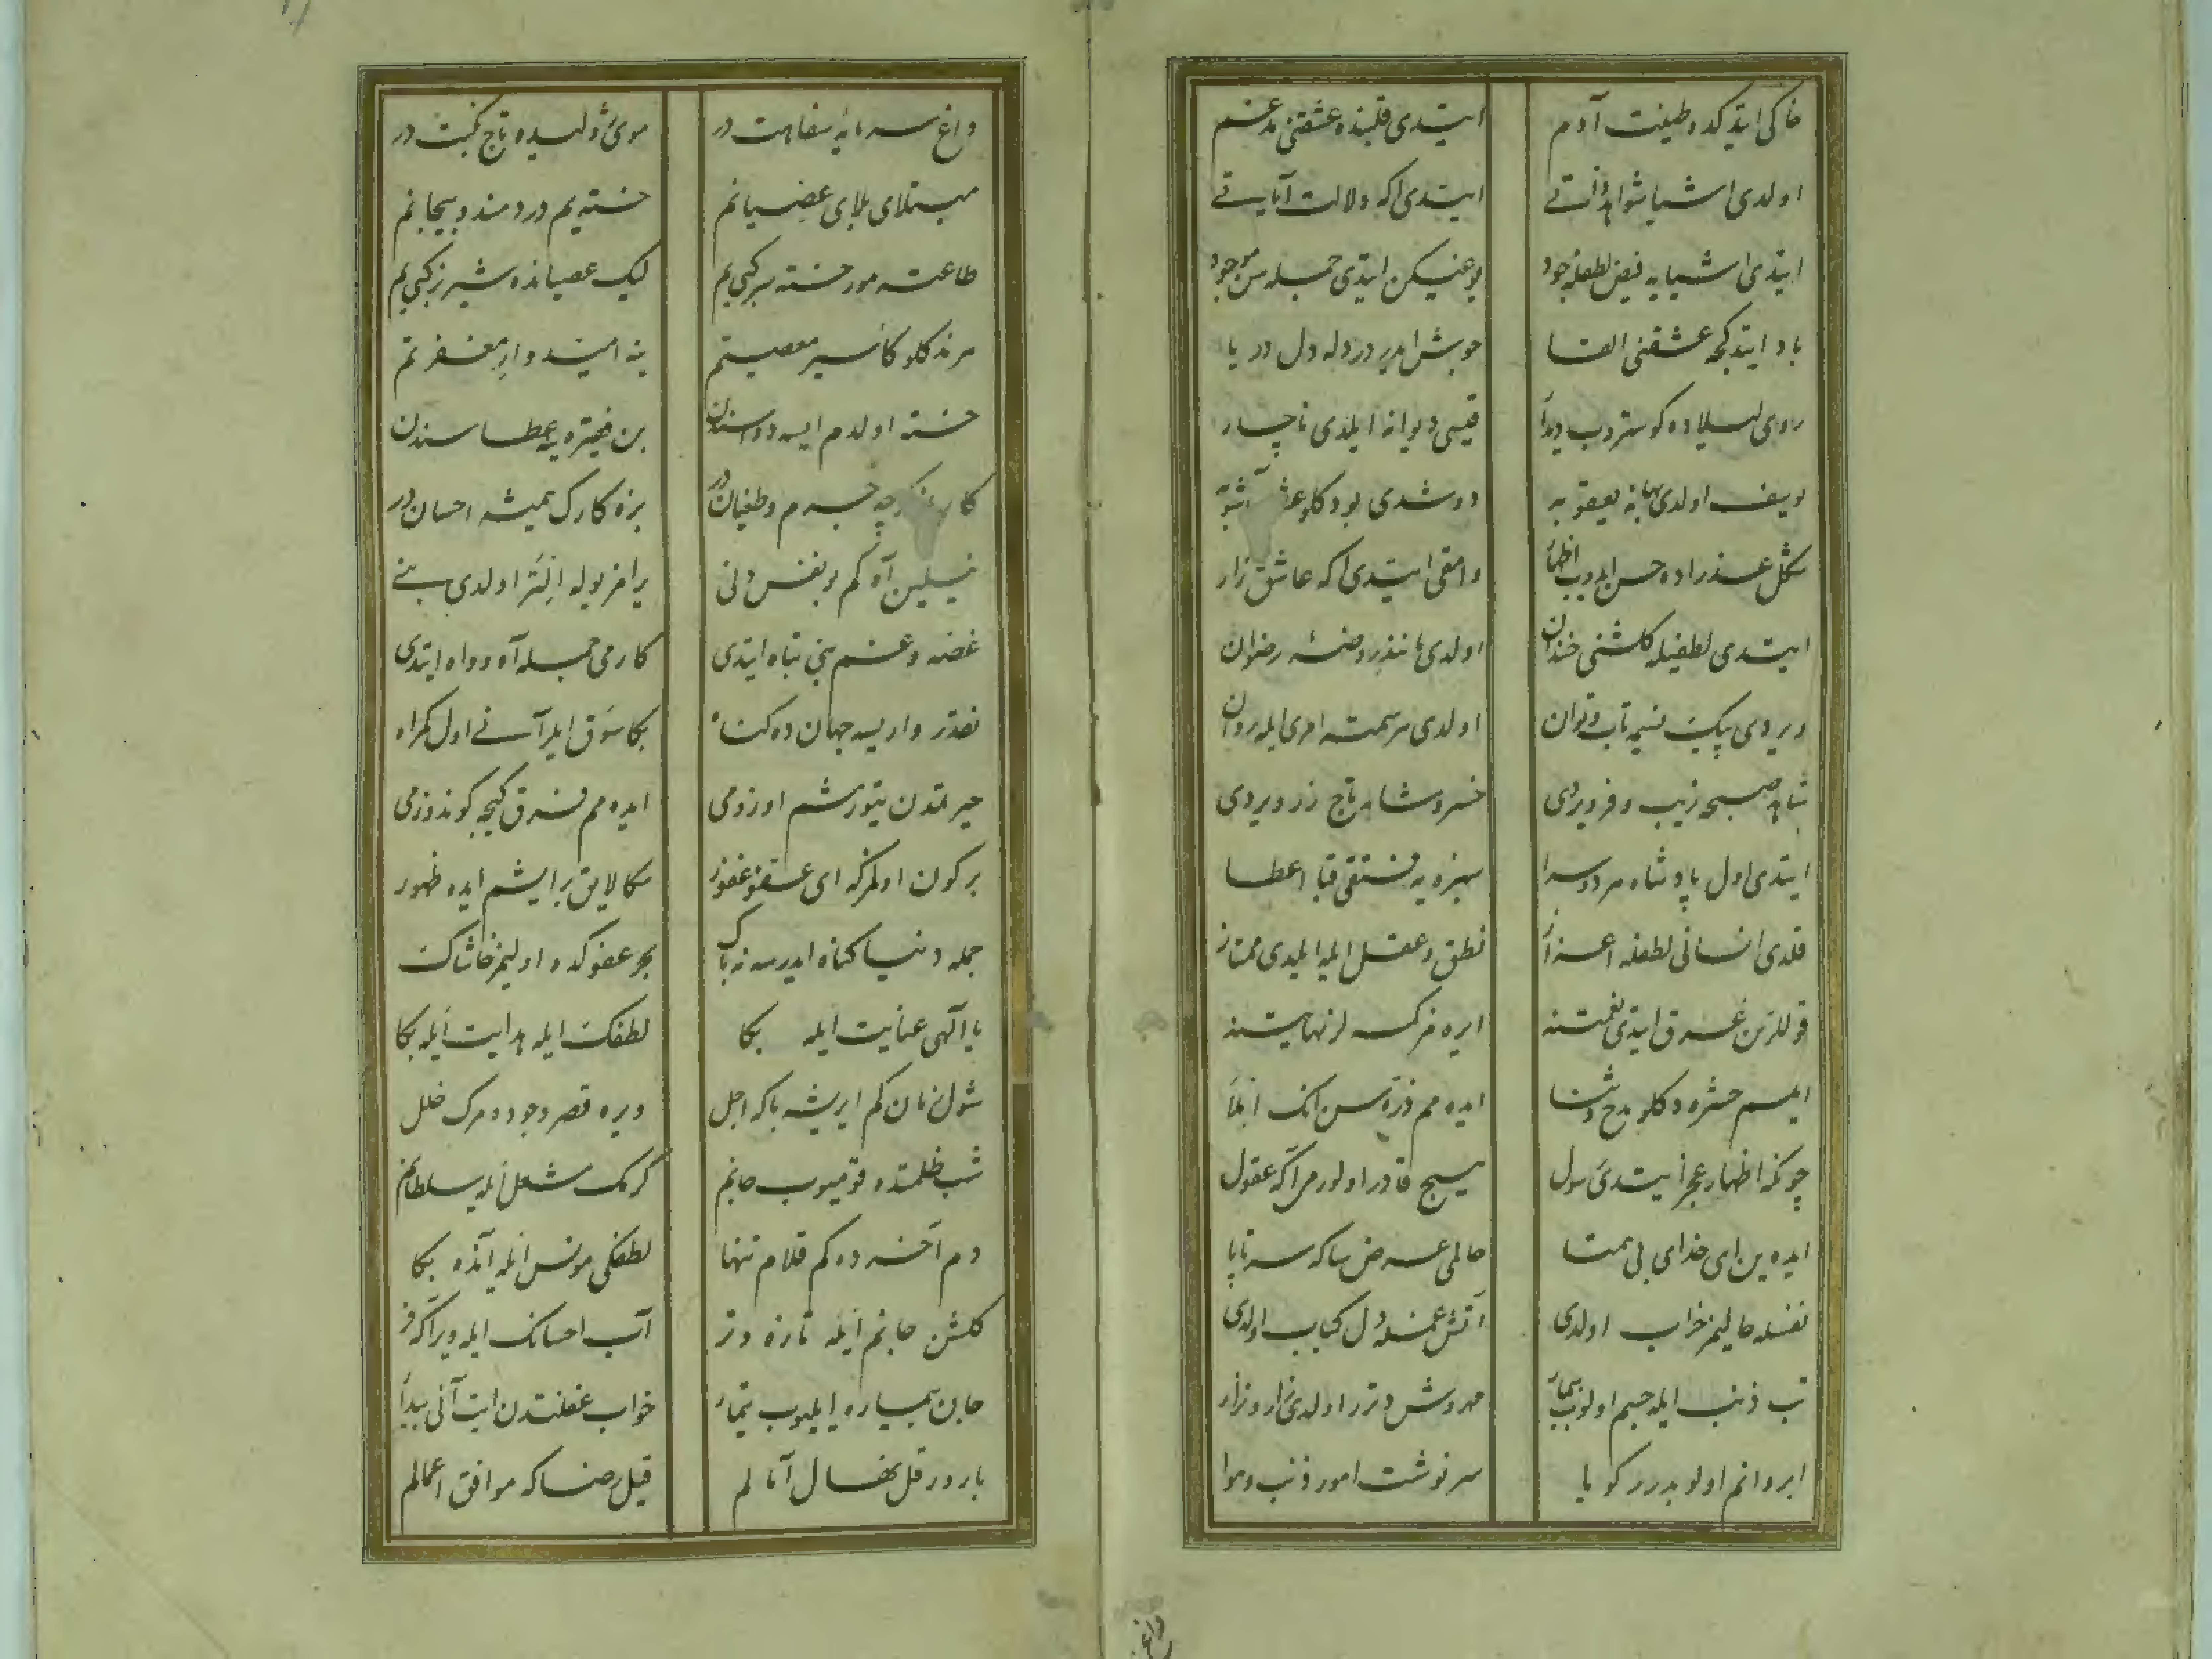 خاکی ایتدکده طینت آدم
ایتدی قلبنده عشقنی مدغم
اولدی اشیا شواهد ذاتی
ایتدی اکه دلالت آیاتی
ایتدی اشیایه فیض لطفله جود
یوغیکن ایتدی جمله سن موجود
باد ایتدکجه عشقنی القا
جوش ایدر درد دله دل دریا
روی لیلاده کوستروب دیدار
قیسی دیوانه ایلدی ناچار
یوسف اولدی بهانه یعقوبه
دوشدی بو دکلو آشوبه
شکل عذراده حسن ایدوب اظهار
وامقی ایتدی اکه عاشق زار
ایتدی لطفیله کلشنی خندان
اولدی مانند روضهٔ رضوان
ویردی پیک نسیمه تاب و توان
اولدی هر سمته امری ایله روان
شاهد صبحه زیب و فر ویردی
خسرو شامه تاج زر ویردی
ایتدی اول پادشاه هر دو سرا
سبزه یه فستقی قبا اعطا
قلدی انسانی لطفله اعزاز
نطق و عقل ایله ایلدی ممتاز
قوللرین غرق ایتدی نعمتنه
ایره مز کمسه لر نهایتنه
ایلسم حشره دکلو مدح و ثنا
ایده مم ذره سن انک انها
چونکه اظهار عجز ایتدی رسول
هیچ قادر اولور می اکه عقول
ایده ین ای خدای بی همتا
حالمی عرض سا که سر تا پا
نفسله حالیم خراب اولدی
آتش غمله دل کباب اولدی
تب ذنب ایله جسم اولوب بیمار
مهوش در اولدی زار و نزار
ابروانم اولوبدرر کویا
سرنوشت امور ذنب و هوا
داغ
داغ سرمایهٔ سفاهت در
موی ژولیده تاج نکبت در
مبتلای بلای عصیانم
خسته یم دردمند و بیجانم
طاعته مور خسته بر کبی یم
لیک عصیانده شیر نر کبی یم
هر نه دکلو کا سیر معصیتم
ینه امیدوار مغفرتم
خسته اولدم ایسه دوا سندن
بن فقیره ینه عطا سندن
کارمز کرچه جرم و طغیان در
بزه کارک همیشه احسان در
نیلین آه کم بو نفس دنی
یرامز یوله ایلتر اولدی بنی
غصه و غم بنی تباه ایتدی
کارمی جمله آه و واه ایتدی
نقدر وار یسه جهان ده کناه
بکا سوق ایلر آنی اول کمراه
حیرتدن یتورمشم اوزومی
ایده مم فرق کیجه کوندوزمی
بر کون اولمز که ای عفو غفور
سکا لایق بر ایشم ایده ظهور
جمله دنیا کناه ایدرسه نه باک
بحر عفوکده اولیمز خاشاک
یا آلهی عنایت ایله بکا
لطفک ایله هدایت ایله بکا
شول زمان کم ایریشه باکه اجل
ویره قصر وجوده مرک خلل
شب ظلمتده قومیوب جانم
کرمک مشعل ایله سلطانم
دم آخرده کم قلام تنها
لطفکی مونس ایله آنده بکا
کلشن جانم ایله تازه و تر
آب احسانک ایله ویر اکه فر
جان بیماره ایلیوب تیمار
خواب غفلتدن ایت آنی بیدار
بارور قل نهال آمالم
قیل رضاکه موافق اعمالم